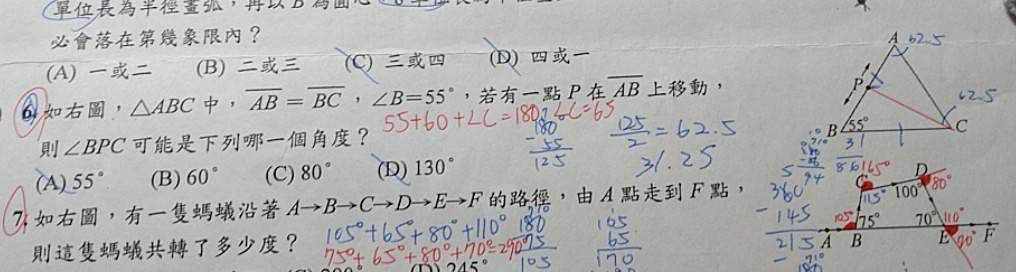 單位長為半徑畫弧，再以 B 為圓心
必會落在第幾象限內？
(A) 一或二 (B) 二或三 (C) 三或四 (D) 四或一
6. 如右圖，△ABC 中，AB = BC，∠B=55°，若有一點 P 在 AB 上移動，
55+60+∠C=180, ∠C=65
則∠BPC 可能是下列哪一個角度？
180
- 55
125
125/2 = 62.5
31.25
(A) 55° (B) 60° (C) 80° (D) 130°
7. 如右圖，有一隻螞蟻沿著 A→B→C→D→E→F 的路徑，由 A 點走到 F 點，
則這隻螞蟻共轉了多少度？
105°+65°+80°+110°
75°+65°+80°+70°=290°
180
75
105
105
65
170
(D) 245°
A 62.5
P
62.5
B 55° C
31
360
- 145
215
C 65° D
115° 100° 80°
105° 75° 70° 110°
A B E F
70°